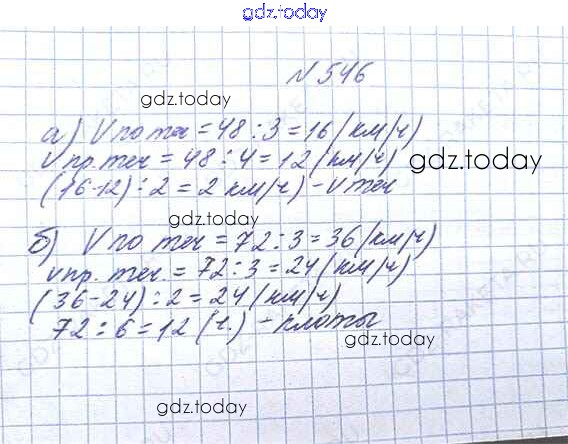 gdz.today
№ 546
gdz.today
а) V по теч = 48 : 3 = 16 (км/ч)
V пр. теч = 48 : 4 = 12 (км/ч)
gdz.today
(16-12) : 2 = 2 км/ч) - V теч
gdz.today
б) V по теч = 72 : 3 = 36 (км/ч)
V пр. теч. = 72 : 3 = 24 (км/ч)
(36-24) : 2 = 24 (км/ч)
72 : 6 = 12 (ч.) - плоты
gdz.today
gdz.today